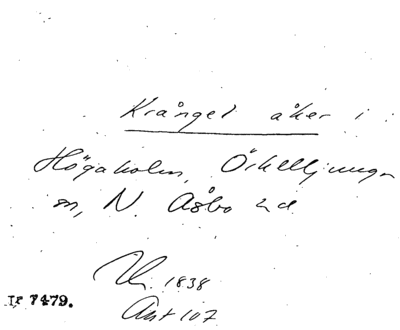 Krångel åker i
Högaholm, Örkelljunga
sn, N. Åsbo hd
1838
Akt 107
IF 7479.